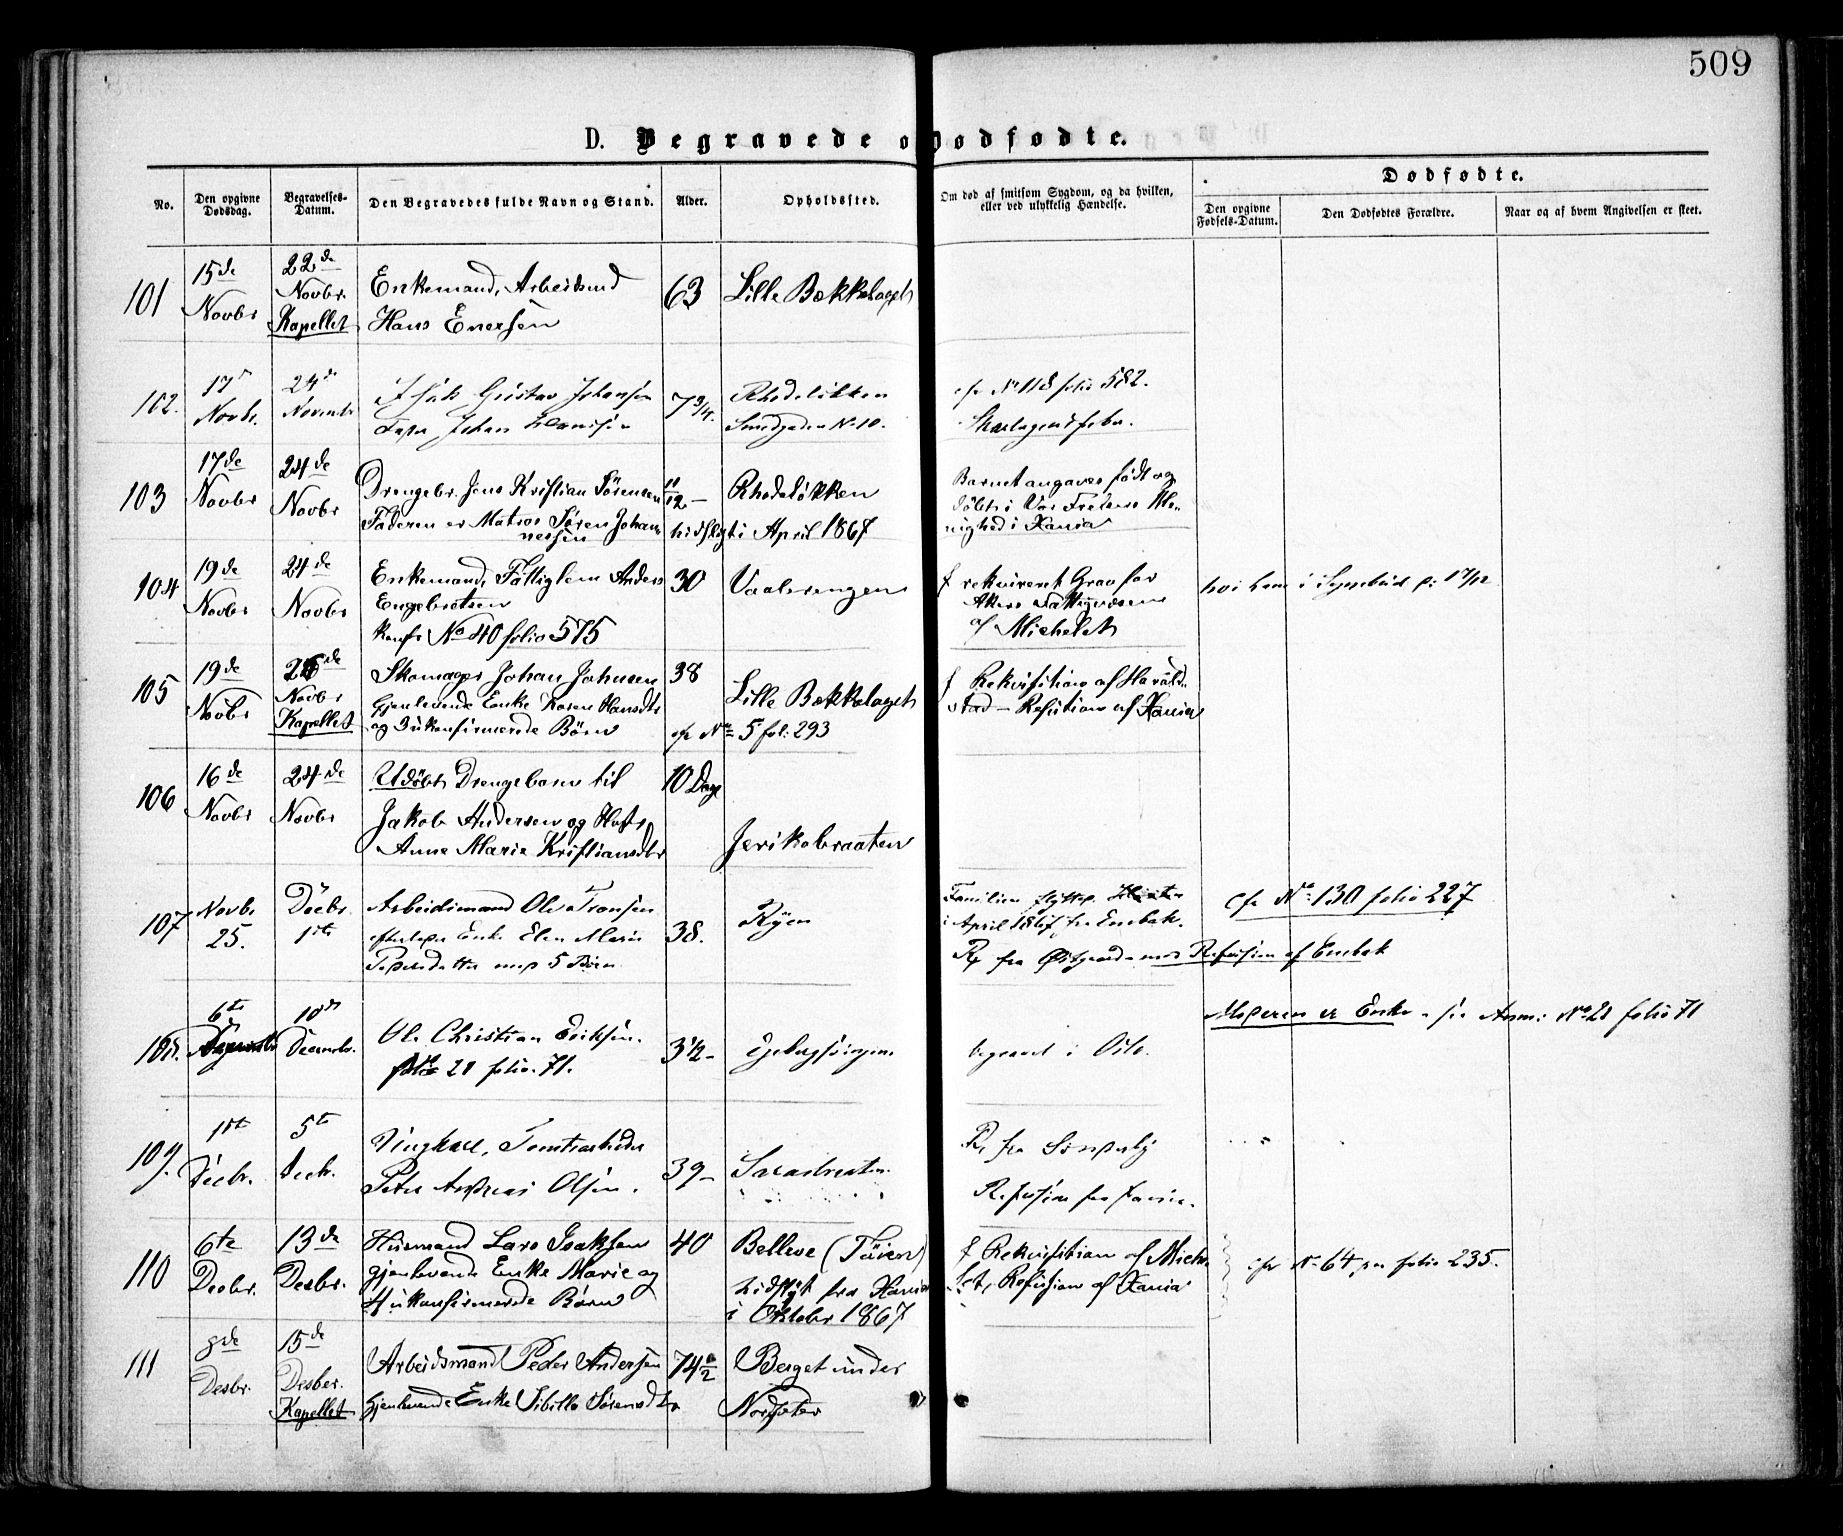 509
D. Begravede o Dodfødte.
No.
Den opgivne Dødsdag.
Begravelses-Datum.
Den Begravedes fulde Navn og Stand.
Alder.
Opholdssted.
Om død af smitsom Sygdom, og da hvilken, eller ved ulykkelig Hændelse.
Dødfødte.
Den opgivne Fødsels-Datum.
Den Dødfødtes Forældre.
Naar og af hvem Angivelsen er skeet.
101
15de Novbr
22de Novbr. Kapellet
Enkemand, Arbeidsmd
Hans Enersen
63
Lille Bækkelaget
102.
17 Novbr.
24de Novembr
Gustav Johansen
Johan
7 3/4.
Rhodeløkken
Smedgaden No 10.
cfr No 118 folio 582.
Skarlagensfeber.
103
17de Novbr
24de Novbr
Drengebr. Jens Kristian Sørensen
Faderen er Matros Søren Johannessen
11/12
Rhodeløkken
hidflyt i April 1867
Barnet angaves født og
døbt i Vor Frelsers Menighed i Xania
104
19de Novbr
24de Novbr
Enkemand, Fattiglem Anders
Engebretsen
konfr No 40 folio 575
30
Vaalerengen
rekvireret Grav for
Akers Fattigvæsen
af Michelet
105
19de Novbr
26de Novbr Kapellet
Skomager Johan Johnsen
Gjenlevende Enke Karen Hansdtr
og 3 ukonfirmerede Børn
38
Lille Bækkelaget
cfr No 5 fol: 293
Rekvisition af Haraldstad - Refusion af Xania
106
16de Novbr
24de Novbr
Udøbt Drengebarn til
Jakob Andersen og Hustr
Anne Marie Kristiansdtr
10 Dage
Jerikobraaten
107
Novbr 25.
Decbr. 1ste
Arbeidsmand Ole Fransen
Enke Elen Marie
5 Børn
38.
Ryen
Familien flyttet
i April fra Enebak.
fra Østgaard med Refusion af Enebak
cfr No 130 folio 227
108.
6te
10de Decembr.
Ole Christian Eriksen.
No 21 folio. 71.
3 1/2
begravet i Oslo.
Moderen er Enke - se Anm: No 21 folio 71
109.
1ste Decbr.
5te Decbr.
Ungkarl, Tomtearbeider
Peter Andreas Olsen.
39
Sarabraaten.
fra
Refusion fra Xania.
110
6te Decbr.
13de Desbr.
Husmand Lars Isaksen
gjenlevende Enke Marie og
4 ukonfirmerede Børn
40
Belleve (Tøien)
hidflyt fra Xania
i Oktober 1867
Rekvisition af Michelet, Refusion af Xania
cfr No 64 folio 235.
111
8de Desbr.
15de Desber. Kapellet
Arbeidsmand Peder Andersen
gjenlevende Enke Sibille Sørensdtr
74 1/2
Berget under
Nordseter